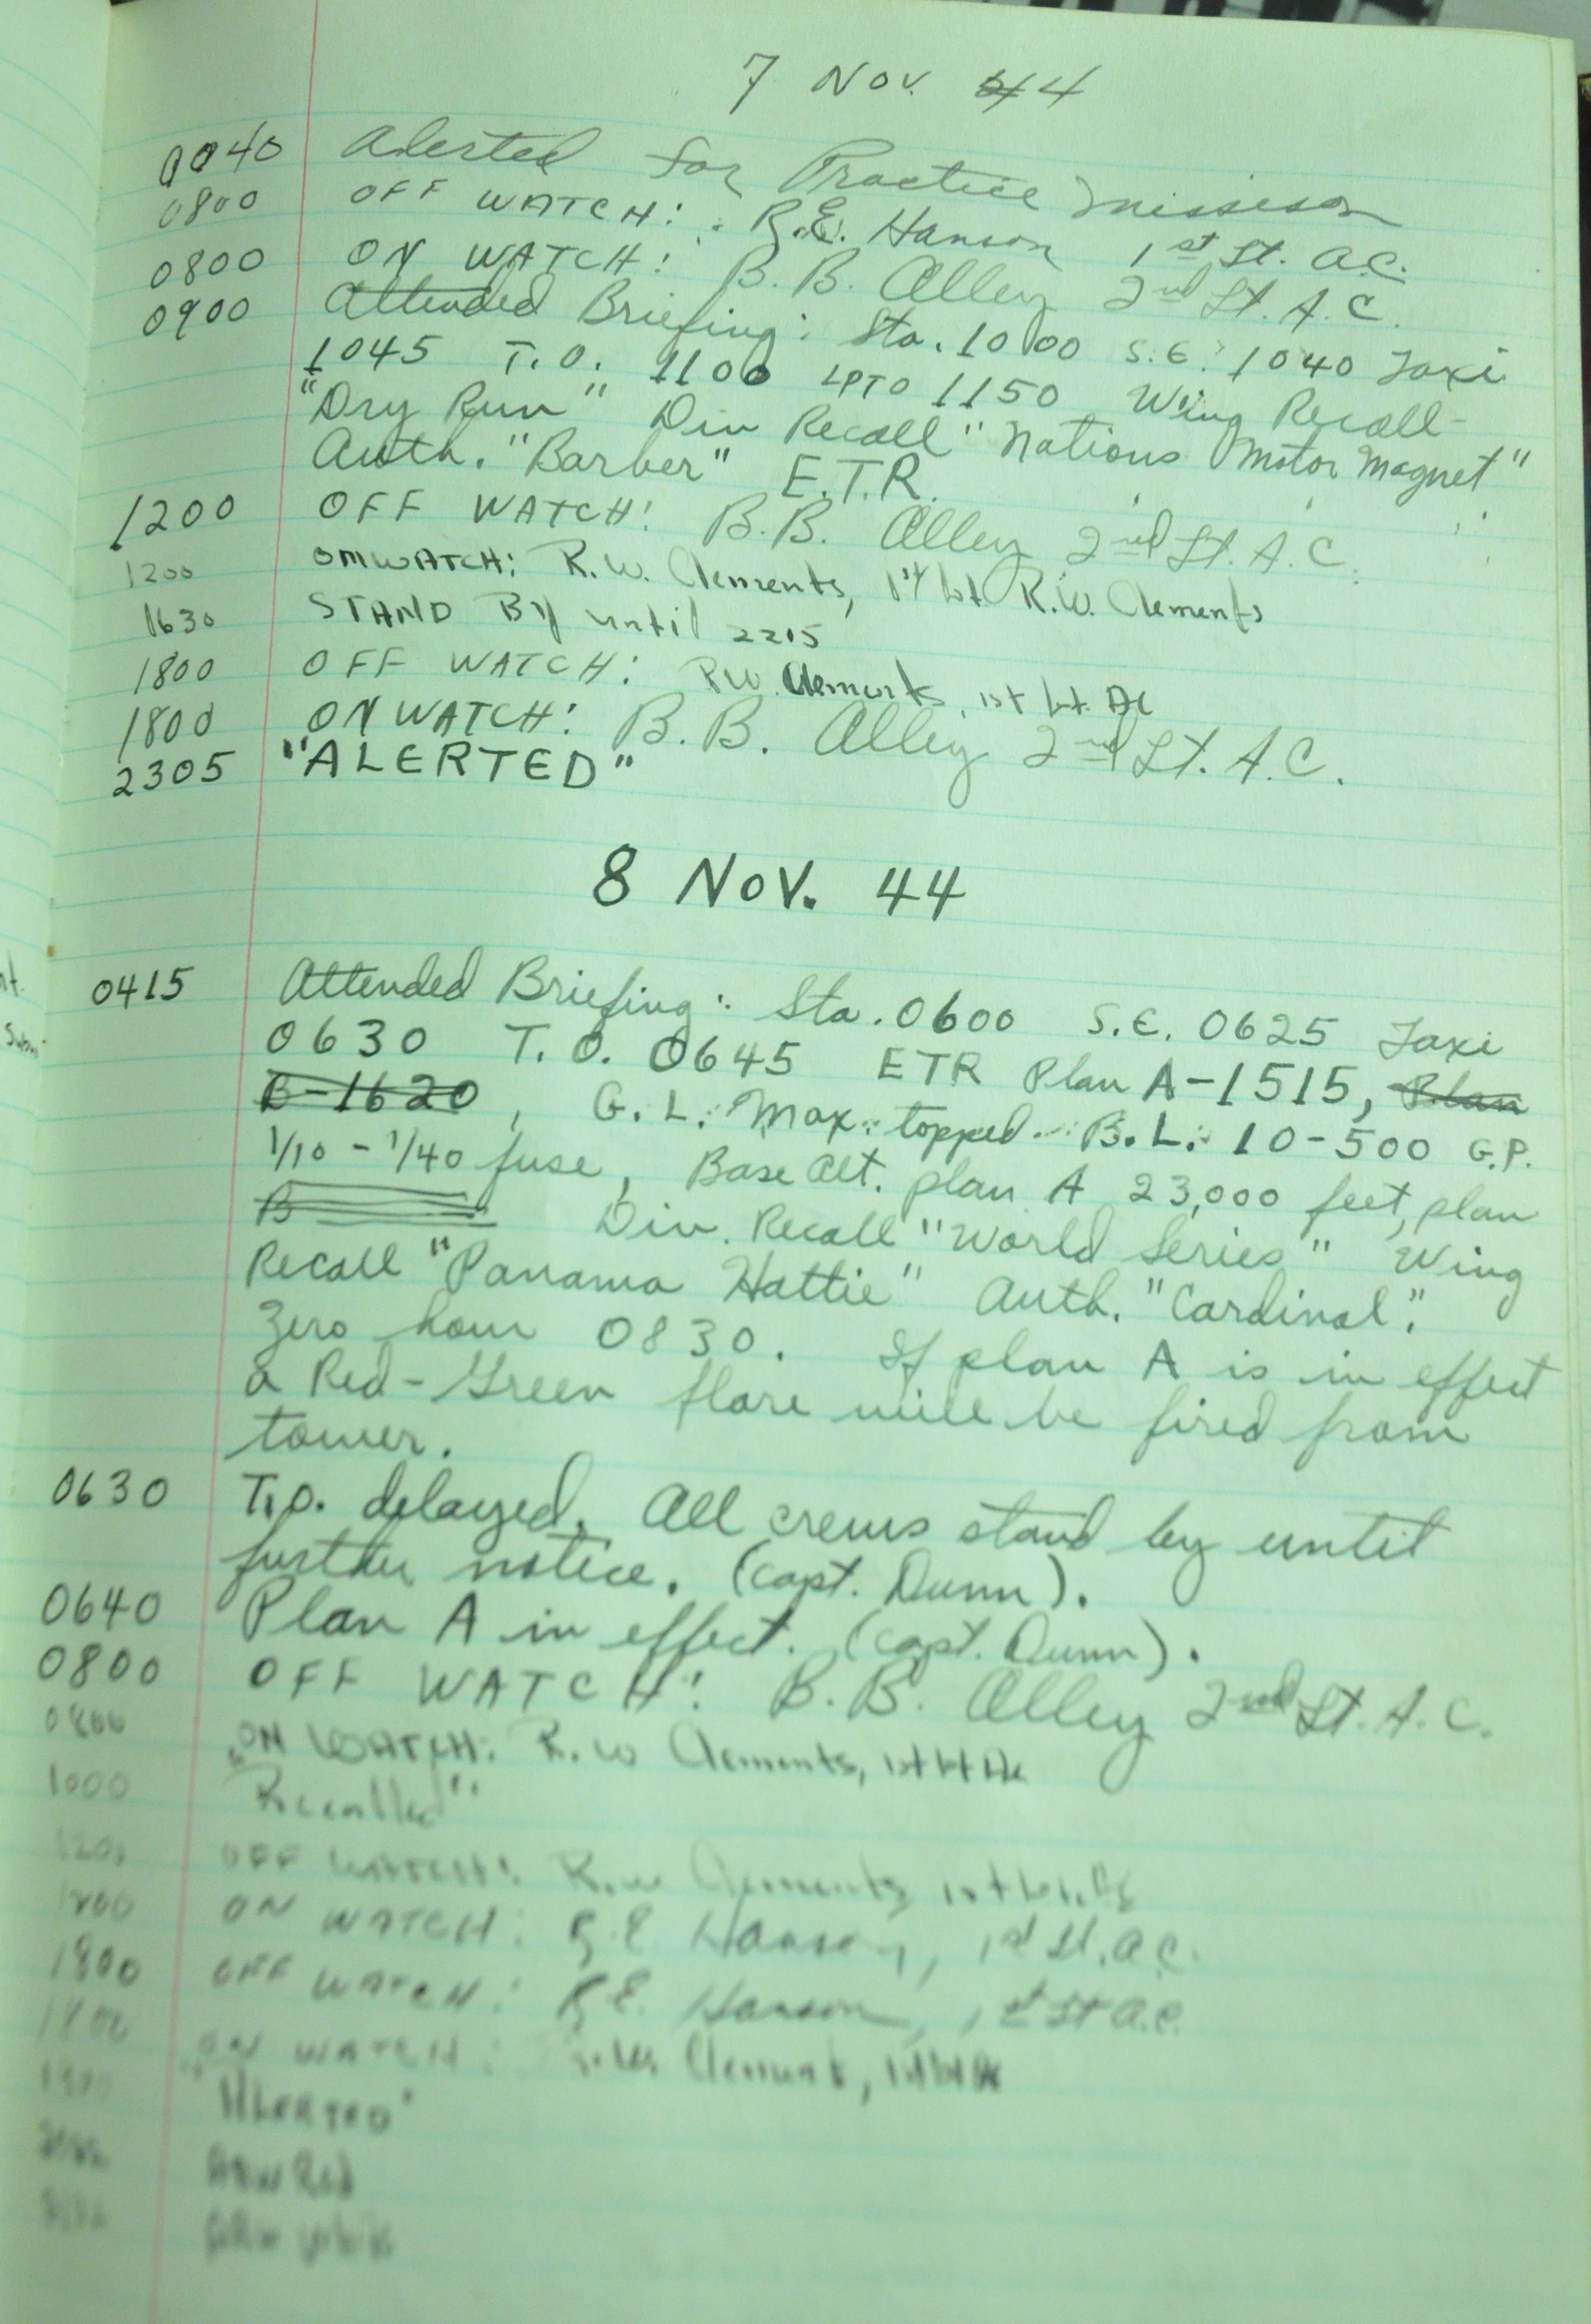 7 Nov. 44
0040 Alerted for Practice mission
0800 OFF WATCH: R.E. Hanson 1st Lt. A.C.
0800 ON WATCH: B.B. Alley 2nd Lt. A.C.
0900 Attended Briefing: Sta. 1000 S.E. 1040 Taxi
1045 T.O. 1100 LPTO 1150 Wing Recall-
"Dry Run" Div Recall "Nations Motor Magnet"
Auth. "Barber" E.T.R.
1200 OFF WATCH: B.B. Alley 2nd Lt. A.C.
1200 ON WATCH: R.W. Clements, 1st Lt. R.W. Clements
1630 STAND BY until 2215
1800 OFF WATCH: R.W. Clements, 1st Lt. AC
1800 ON WATCH: B.B. Alley 2nd Lt. A.C.
2305 "ALERTED"
8 NOV. 44
0415 Attended Briefing: Sta. 0600 S.E. 0625 Taxi
0630 T.O. 0645 ETR Plan A-1515, Plan
B-1620, G.L: Max: topped. B.L: 10-500 G.P.
1/10 - 1/40 fuse, Base Alt. plan A 23,000 feet, plan
B Div. Recall "World Series" Wing
Recall "Panama Hattie" Auth. "Cardinal".
Zero hour 0830. If plan A is in effect
a Red-Green flare will be fired from
tower.
0630 T.O. delayed. All crews stand by until
further notice. (Capt. Dunn).
0640 Plan A in effect. (Capt. Dunn).
0800 OFF WATCH: B.B. Alley 2nd Lt. A.C.
0800 ON WATCH: R.W Clements, 1st Lt Ac
1000 "Recalled"
1200 OFF WATCH: R.W Clements 1st Lt. AC
1200 ON WATCH: R.E. Hanson, 1st Lt. A.C.
1800 OFF WATCH: R.E. Hanson, 1st Lt A.C.
1800 ON WATCH: Clements, 1st Lt AC
"ALERTED"